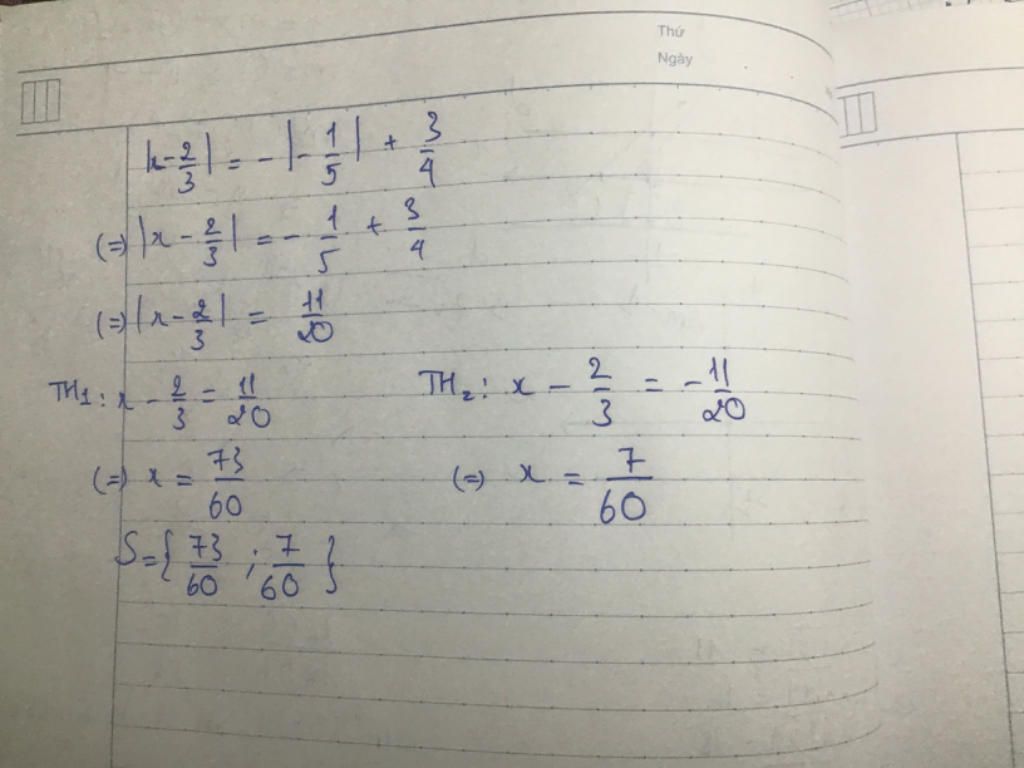 Thứ
Ngày
|x - 2/3| = - |- 1/5| + 3/4
(=) |x - 2/3| = - 1/5 + 3/4
(=) |x - 2/3| = 11/20
TH1: x - 2/3 = 11/20 TH2: x - 2/3 = - 11/20
(=) x = 73/60 (=) x = 7/60
S = { 73/60 ; 7/60 }